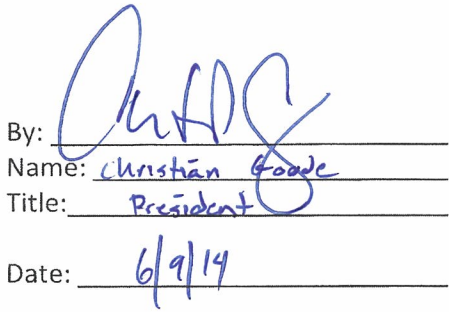 By:
Name: Christian Goode
Title: President
Date: 6/9/14